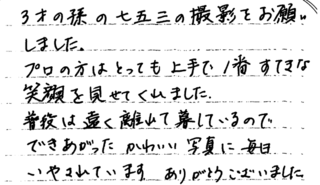 3才の孫の七五三の撮影をお願い
しました。
プロの方はとっても上手で1番すてきな
笑顔を見せてくれました。
普段は遠く離れて暮しているので
できあがった かわいい 写真に 毎日
いやされています ありがとうございました